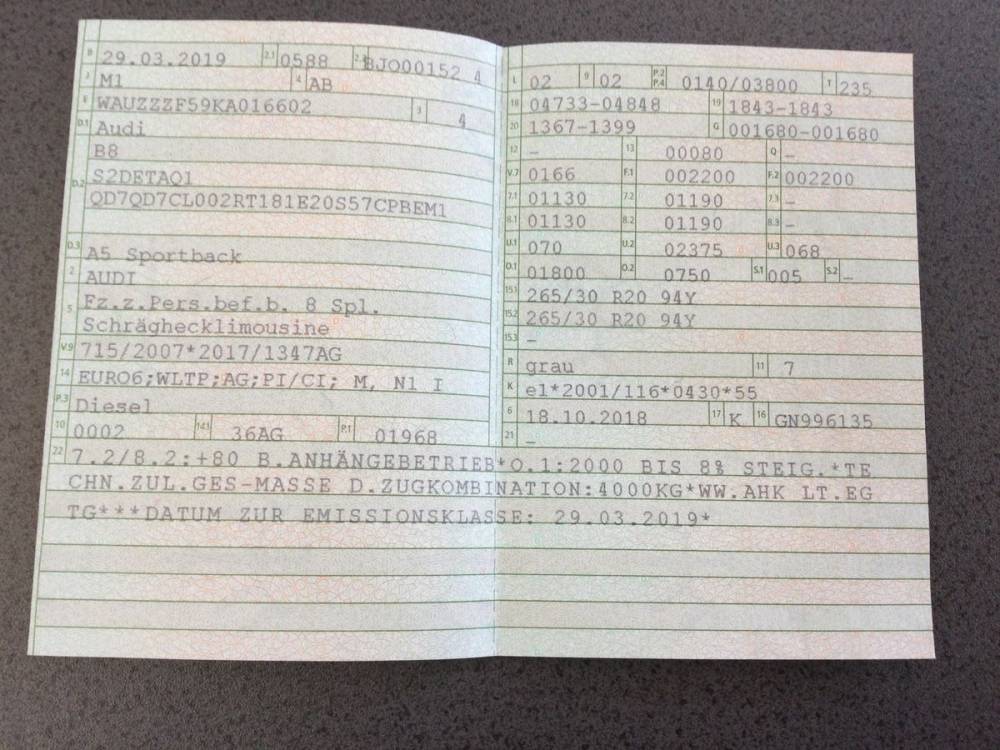 B 29.03.2019 2.1 0588 BJO00152 4
J M1 4 AB
E WAUZZZF59KA016602 3 4
D.1 Audi
B8
D.2 S2DETAQ1
QD7QD7CL002RT181E20S57CPBEM1
D.3 A5 Sportback
2 AUDI
5 Fz.z.Pers.bef.b. 8 Spl.
Schräghecklimousine
V.9 715/2007*2017/1347AG
14 EURO6;WLTP;AG;PI/CI; M, N1 I
P.3 Diesel
10 0002 14.1 36AG P.1 01968
L 02 9 02 P.2 P.4 0140/03800 T 235
18 04733-04848 19 1843-1843
20 1367-1399 G 001680-001680
12 – 13 00080 Q –
V.7 0166 F.1 002200 F.2 002200
7.1 01130 7.2 01190 7.3 –
8.1 01130 8.2 01190 8.3 –
U.1 070 U.2 02375 U.3 068
O.1 01800 O.2 0750 S.1 005 S.2 –
15.1 265/30 R20 94Y
15.2 265/30 R20 94Y
15.3 –
R grau 11 7
K e1*2001/116*0430*55
6 18.10.2018 17 K 16 GN996135
21 –
22 7.2/8.2:+80 B.ANHÄNGEBETRIEB*O.1:2000 BIS 8% STEIG.*TE
CHN.ZUL.GES-MASSE D.ZUGKOMBINATION:4000KG*WW.AHK LT.EG
TG***DATUM ZUR EMISSIONSKLASSE: 29.03.2019*